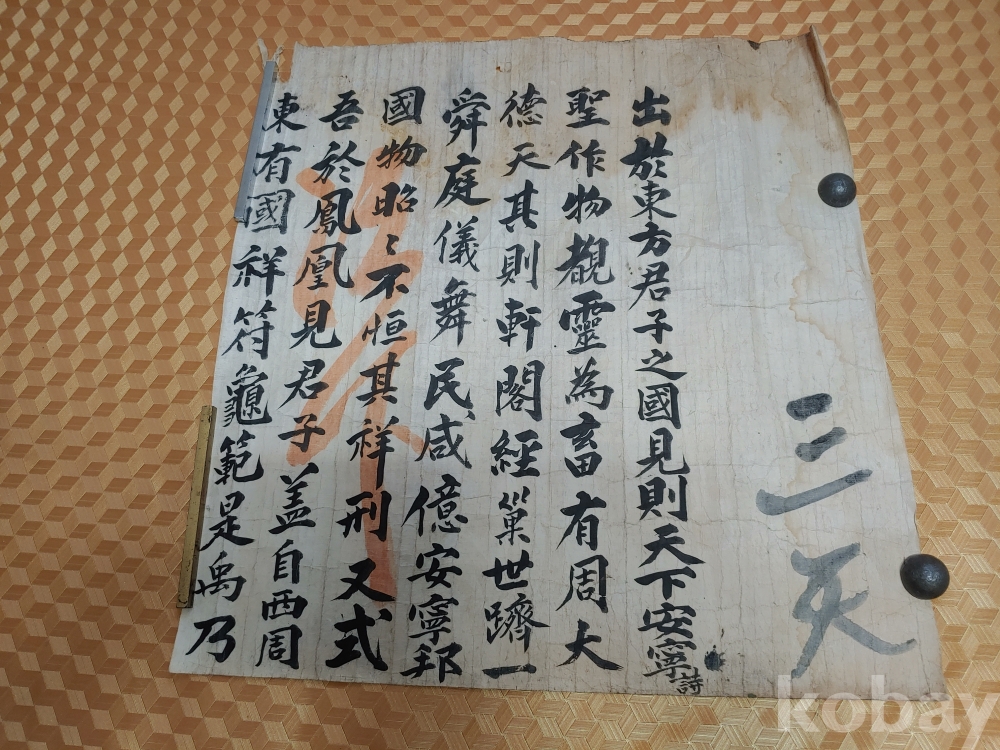 三天
出於東方君子之國見則天下安寧詩
聖作物覩靈為畜有周大
德天其則軒閣經巢世躋一
舜庭儀舞民咸億安寧邦
國物昭〻不恒其祥刑又式
吾於鳳凰見君子盖自西周
東有國祥符龜範是禹乃
kobay